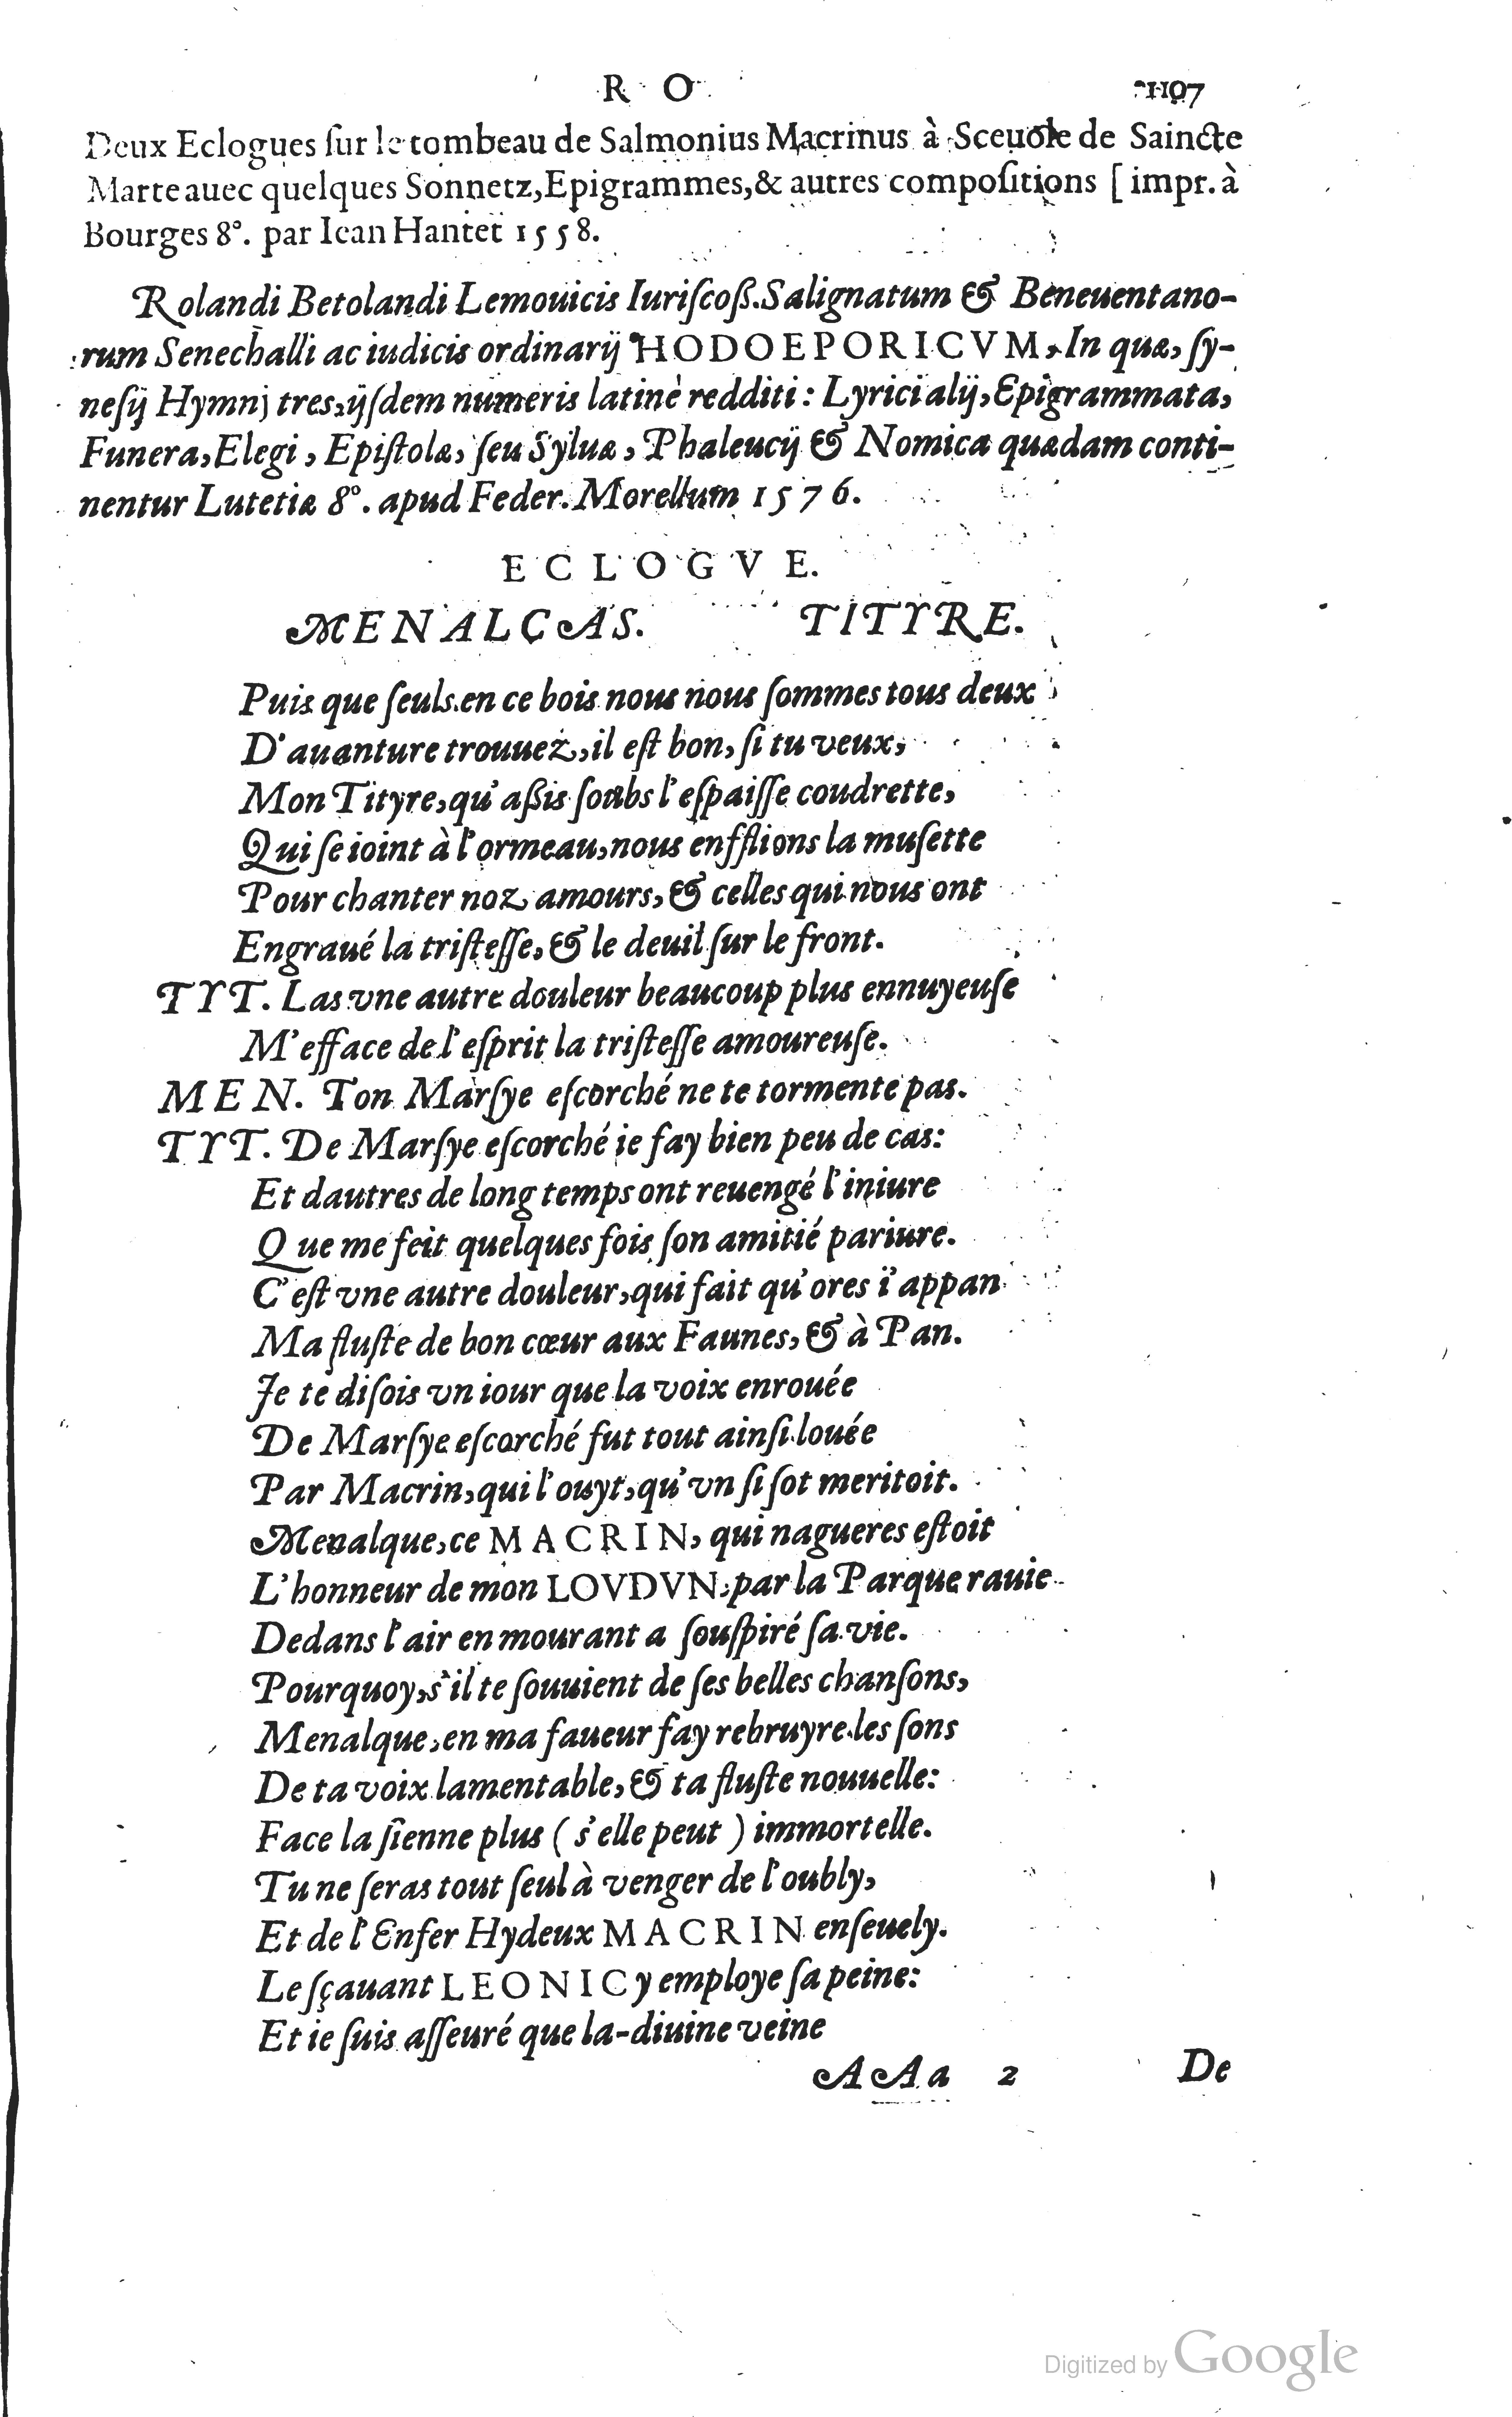 R O 1107
Deux Eclogues ſur le tombeau de Salmonius Macrinus à Sceuole de Saincte
Marte auec quelques Sonnetz, Epigrammes, & autres compoſitions [impr. à
Bourges 8°. par Iean Hantet 1558.
Rolandi Betolandi Lemouicis Iuriſcoß. Salignatum & Beneuentano-
rum Senechalli ac iudicis ordinarij HODOEPORICVM, In quæ, ſy-
neſij Hymnj tres, ijſdem numeris latinè redditi: Lyrici alij, Epigrammata,
Funera, Elegi, Epiſtolæ, ſeu Syluæ, Phaleucij & Nomica quædam conti-
nentur Lutetiæ 8°. apud Feder. Morellum 1576.
ECLOGVE.
MENALCAS. TITYRE.
Puis que ſeuls en ce bois nous nous ſommes tous deux
D'auanture trouuez, il eſt bon, ſi tu veux,
Mon Tityre, qu'aßis ſoubs l'eſpaiſſe coudrette,
Qui ſe ioint à l'ormeau, nous enfflions la muſette
Pour chanter noz amours, & celles qui nous ont
Engraué la triſteſſe, & le deuil ſur le front.
TYT. Las vne autre douleur beaucoup plus ennuyeuſe
M'efface de l'eſprit la triſteſſe amoureuſe.
MEN. Ton Marſye eſcorché ne te tormente pas.
TYT. De Marſye eſcorché ie fay bien peu de cas:
Et dautres de long temps ont reuengé l'iniure
Que me feit quelques fois ſon amitié pariure.
C'eſt vne autre douleur, qui fait qu'ores i'appan
Ma fluſte de bon cœur aux Faunes, & à Pan.
Je te diſois vn iour que la voix enrouée
De Marſye eſcorché fut tout ainſi louée
Par Macrin, qui l'ouyt, qu'vn ſi ſot meritoit.
Menalque, ce MACRIN, qui nagueres eſtoit
L'honneur de mon LOVDVN, par la Parque rauie
Dedans l'air en mourant a ſouſpiré ſa vie.
Pourquoy, s'il te ſouuient de ſes belles chanſons,
Menalque, en ma faueur fay rebruyre les ſons
De ta voix lamentable, & ta fluſte nouuelle:
Face la ſienne plus (s'elle peut) immortelle.
Tu ne ſeras tout ſeul à venger de l'oubly,
Et de l'Enfer Hydeux MACRIN enſeuely.
Le ſçauant LEONIC y employe ſa peine:
Et ie ſuis aſſeuré que la-diuine veine
AAa 2 De
Digitized by Google